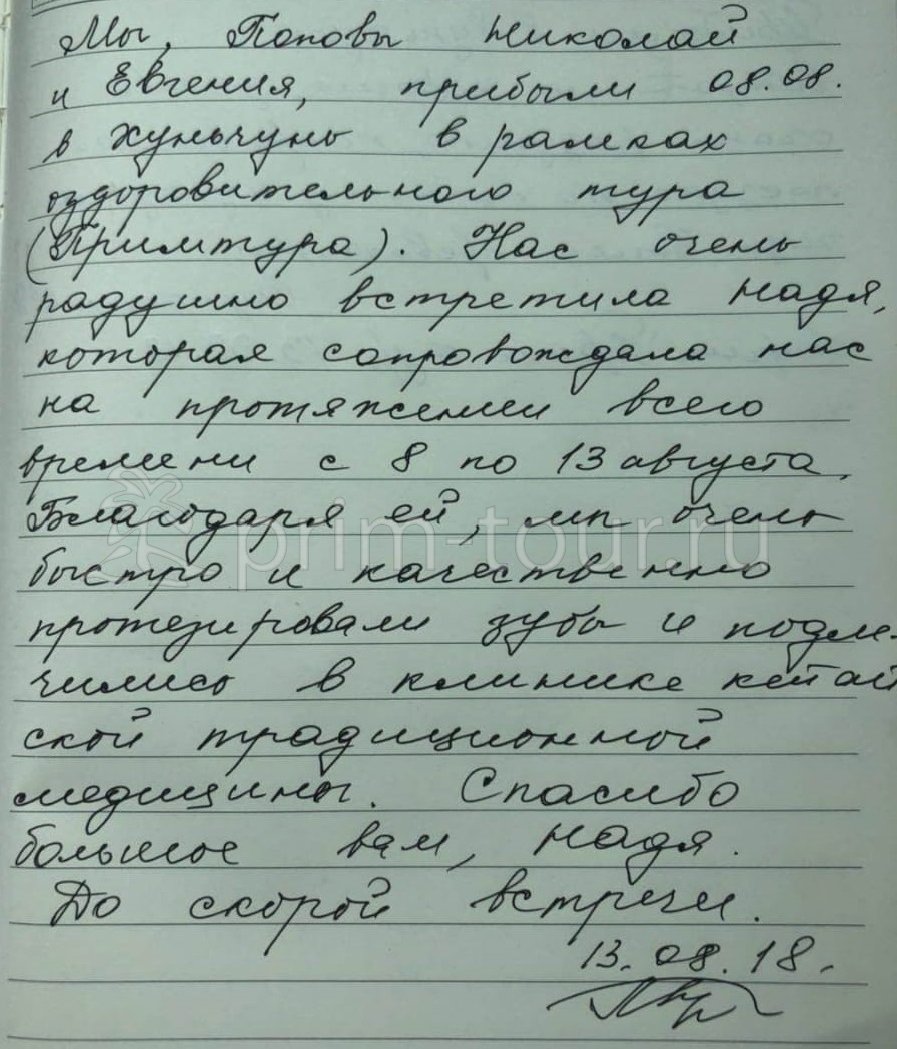 Мы, Поповы Николай
и Евгения, прибыли 08.08.
в Хуньчунь в рамках
оздоровительного тура
(Примтура). Нас очень
радушно встретила Надя,
которая сопровождала нас
на протяжении всего
времени с 8 по 13 августа.
Благодаря ей, мы очень
prim-tour.ru
быстро и качественно
протезировали зубы и подле-
чились в клинике китай
ской традиционной
медицины. Спасибо
большое вам, Надя.
До скорой встречи.
13.08.18.